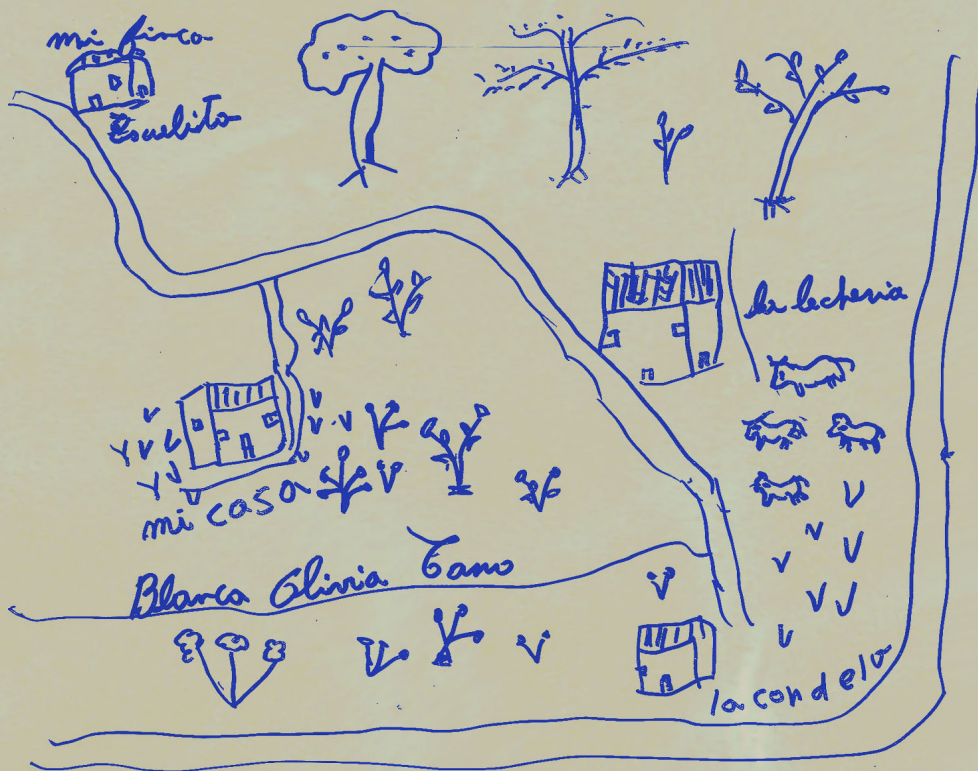 mi finca
Escuelita
la lecheria
mi casa
Blanca Olivia Tamo
la candelv